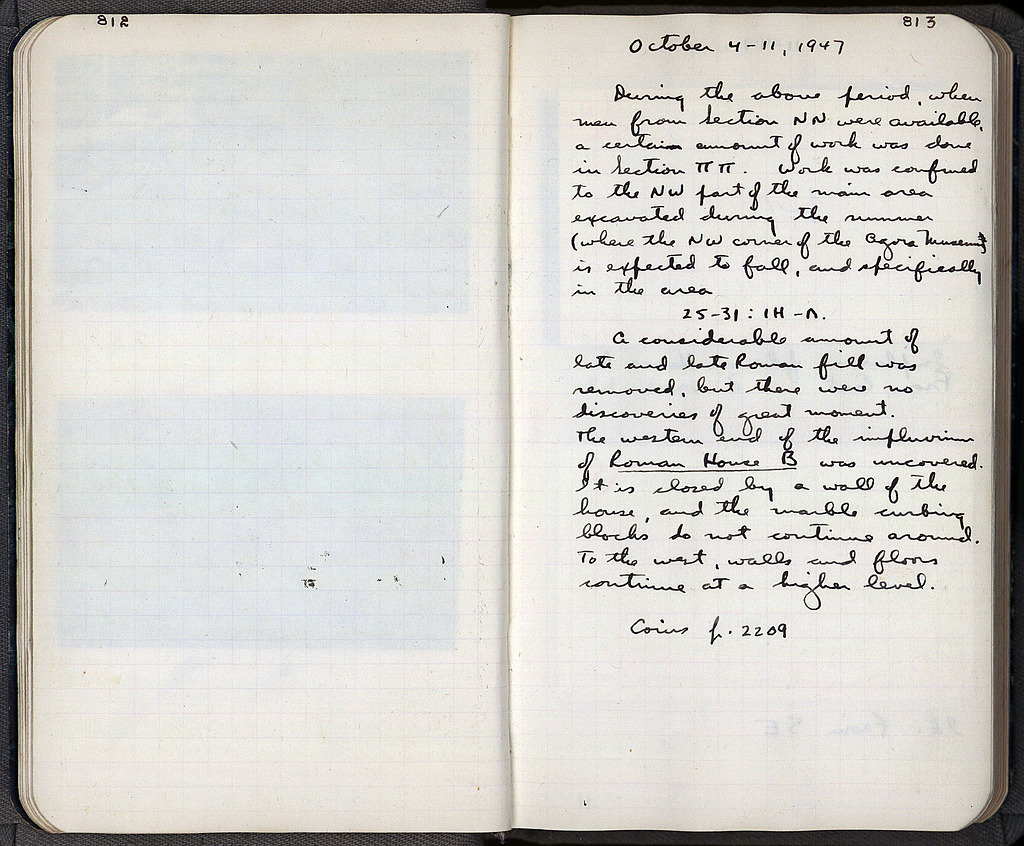 812
813
October 4-11, 1947
During the above period, when
men from Section NN were available,
a certain amount of work was done
in Section ΠΠ. Work was confined
to the NW part of the main area
excavated during the summer
(where the NW corner of the Agora Museum
is expected to fall, and specifically
in the area
25-31: IH-Λ.
A considerable amount of
late and late Roman fill was
removed, but there were no
discoveries of great moment.
The western end of the impluvium
of Roman House B was uncovered.
It is closed by a wall of the
house, and the marble curbing
blocks do not continue around.
To the west, walls and floors
continue at a higher level.
Coins p. 2209